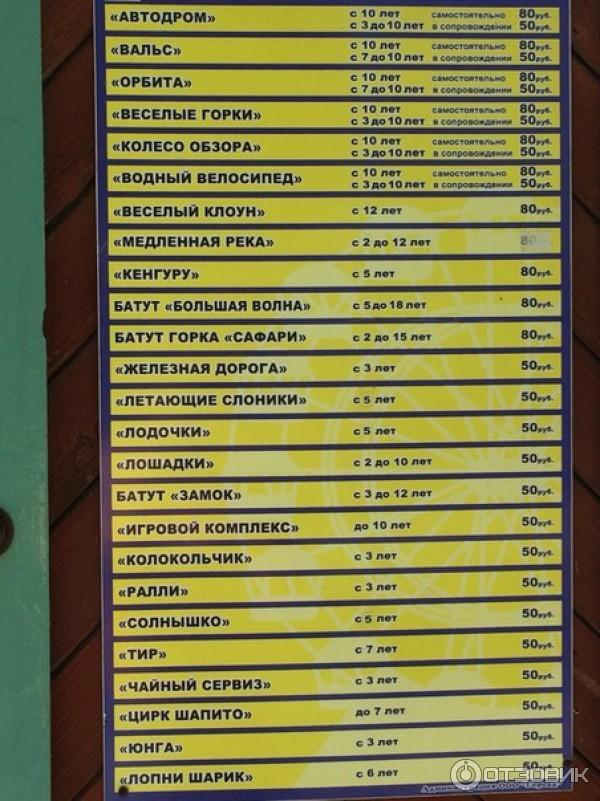 «АВТОДРОМ» с 10 лет самостоятельно 80руб.
с 3 до 10 лет в сопровождении 50руб.
«ВАЛЬС» с 10 лет самостоятельно 80руб.
с 7 до 10 лет в сопровождении 50руб.
«ОРБИТА» с 10 лет самостоятельно 80руб.
с 7 до 10 лет в сопровождении 50руб.
«ВЕСЕЛЫЕ ГОРКИ» с 10 лет самостоятельно 80руб.
с 3 до 10 лет в сопровождении 50руб.
«КОЛЕСО ОБЗОРА» с 10 лет самостоятельно 80руб.
с 3 до 10 лет в сопровождении 50руб.
«ВОДНЫЙ ВЕЛОСИПЕД» с 10 лет самостоятельно 80руб.
с 3 до 10 лет в сопровождении 50руб.
«ВЕСЕЛЫЙ КЛОУН» с 12 лет 80руб.
«МЕДЛЕННАЯ РЕКА» с 2 до 12 лет 80руб.
«КЕНГУРУ» с 5 лет 80руб.
БАТУТ «БОЛЬШАЯ ВОЛНА» с 5 до 18 лет 80руб.
БАТУТ ГОРКА «САФАРИ» с 2 до 15 лет 80руб.
«ЖЕЛЕЗНАЯ ДОРОГА» с 3 лет 50руб.
«ЛЕТАЮЩИЕ СЛОНИКИ» с 5 лет 50руб.
«ЛОДОЧКИ» с 5 лет 50руб.
«ЛОШАДКИ» с 2 до 10 лет 50руб.
БАТУТ «ЗАМОК» с 3 до 12 лет 50руб.
«ИГРОВОЙ КОМПЛЕКС» до 10 лет 50руб.
«КОЛОКОЛЬЧИК» с 3 лет 50руб.
«РАЛЛИ» с 3 лет 50руб.
«СОЛНЫШКО» с 5 лет 50руб.
«ТИР» с 7 лет 50руб.
«ЧАЙНЫЙ СЕРВИЗ» с 3 лет 50руб.
«ЦИРК ШАПИТО» до 7 лет 50руб.
«ЮНГА» с 3 лет 50руб.
«ЛОПНИ ШАРИК» с 6 лет 50руб.
Администрация ООО
ОТЗОВИК